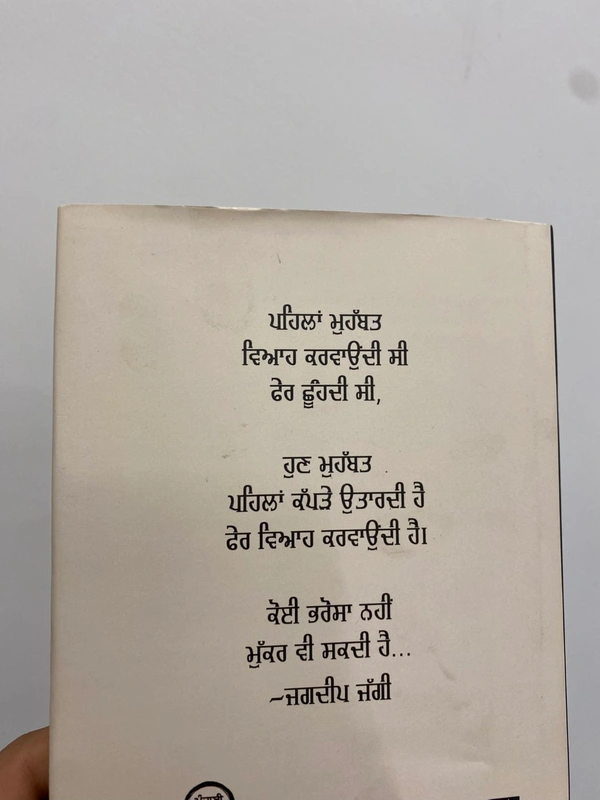 ਪਹਿਲਾਂ ਮੁਹੱਬਤ
ਵਿਆਹ ਕਰਵਾਉਂਦੀ ਸੀ
ਫੇਰ ਛੂੰਹਦੀ ਸੀ,
ਹੁਣ ਮੁਹੱਬਤ
ਪਹਿਲਾਂ ਕੱਪੜੇ ਉਤਾਰਦੀ ਹੈ
ਫੇਰ ਵਿਆਹ ਕਰਵਾਉਂਦੀ ਹੈ।
ਕੋਈ ਭਰੋਸਾ ਨਹੀਂ
ਮੁੱਕਰ ਵੀ ਸਕਦੀ ਹੈ...
~ਜਗਦੀਪ ਜੱਗੀ